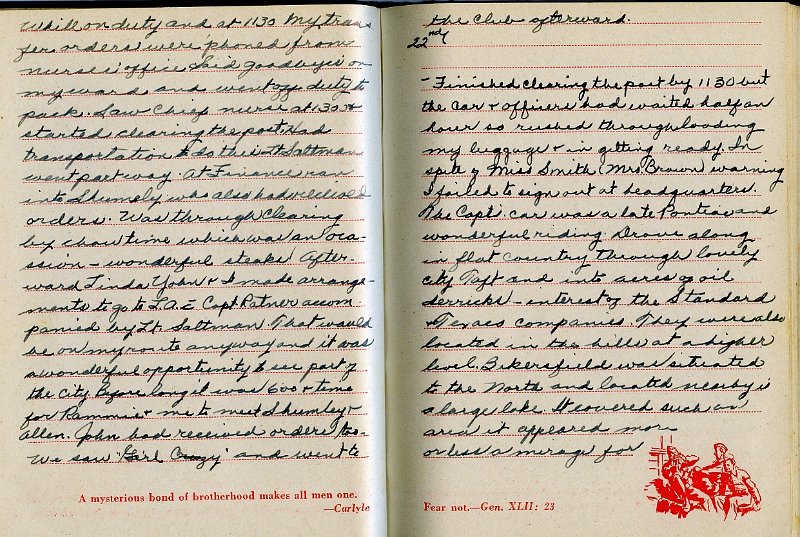 While on duty and at 1130 My trans
fer orders were 'phoned from
nurses' office. Said goodbye's on
my ward and went off duty to
pack. Saw Chief nurse at 1:30 &
started clearing the post. Had
transportation to do this - Lt Saltman
went part way. At Finance ran
into Shumely who also had received
orders. Was through clearing
by chow time which was an oca-
ssion - wonderful steaks. After-
ward Linda York & I made arrange-
ments to go to L.A. c̄ Capt Ratner accom-
panied by Lt. Saltman. That would
be on my route anyway and it was
a wonderful opportunity to see part of
the city. Before long it was 600 & time
for Rammie & me to meet Shumley &
Allen. John had received orders too.
We saw "Girl Crazy" and went to
A mysterious bond of brotherhood makes all men one.
—Carlyle
the club afterward.
22nd
- Finished clearing the post by 1130 but
the car & officers had waited half an
hour so rushed through loading
my luggage & in getting ready. In
spite of Miss Smith (Mrs Brown) warning
I failed to sign out at headquarters.
The Capt. car was a late Pontiac and
wonderful riding. Drove along
in flat country through lovely
city Taft and into acres of oil
derricks - interest of the Standard
& Texaco companies. They were also
located in the hills at a higher
level. Bakersfield was situated
to the North and located nearby is
a large lake. It covered such an
area it appeared more
or less a mirage for
Fear not.—Gen. XLII: 23